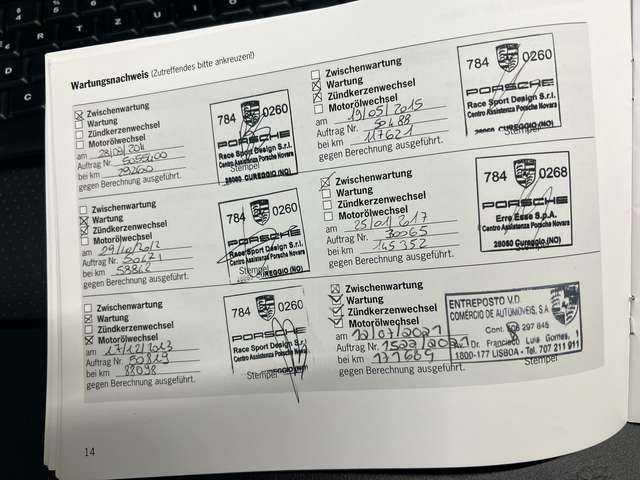 Wartungsnachweis (Zutreffendes bitte ankreuzen!)
Zwischenwartung
Wartung
Zündkerzenwechsel
Motorölwechsel
am 28/09/2011
Auftrag Nr.
bei km 29260
gegen Berechnung ausgeführt.
784 0260
PORSCHE
Race Sport Design S.r.l.
Centro Assistenza Porsche Novara
28060 CUREGGIO (NO)
Stempel
Zwischenwartung
Wartung
Zündkerzenwechsel
Motorölwechsel
am 29/10/2012
Auftrag Nr. 50471
bei km 58862
gegen Berechnung ausgeführt.
784 0260
PORSCHE
Race Sport Design S.r.l.
Centro Assistenza Porsche Novara
CUREGGIO (NO)
Stempel
Zwischenwartung
Wartung
Zündkerzenwechsel
Motorölwechsel
am 17/12/2013
Auftrag Nr. 50819
bei km 88098
gegen Berechnung ausgeführt.
784 0260
PORSCHE
Race Sport Design S.r.l.
Centro Assistenza Porsche Novara
Stempel
Zwischenwartung
Wartung
Zündkerzenwechsel
Motorölwechsel
am 19/05/2015
Auftrag Nr. 50488
bei km 117621
gegen Berechnung ausgeführt.
784 0260
PORSCHE
Race Sport Design S.r.l.
Centro Assistenza Porsche Novara
28060 CUREGGIO (NO)
Stempel
Zwischenwartung
Wartung
Zündkerzenwechsel
Motorölwechsel
am 25/01/2017
Auftrag Nr. 30065
bei km 145352
gegen Berechnung ausgeführt.
784 0268
PORSCHE
Erre Esse S.p.A.
Centro Assistenza Porsche Novara
28060 Cureggio (NO)
Stempel
Zwischenwartung
Wartung
Zündkerzenwechsel
Motorölwechsel
am 12/07/2021
Auftrag Nr. 1522/2021
bei km 171669
gegen Berechnung ausgeführt.
ENTREPOSTO V.D.
COMÉRCIO DE AUTOMÓVEIS, S.A.
Cont. 506 297 845
Dr. Francisco Luis Gomes, 1
1800-177 LISBOA - Tel. 707 211 911
Stempel
14